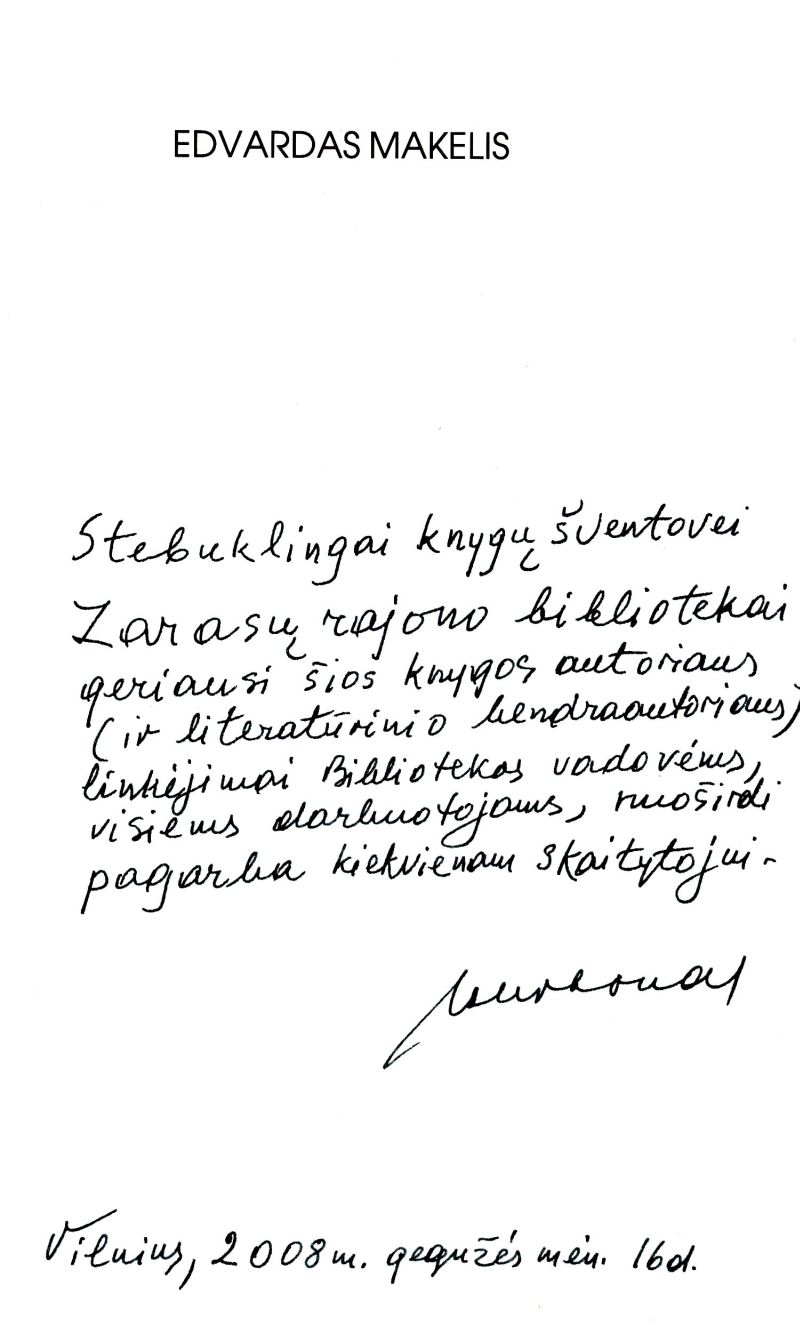 EDVARDAS MAKELIS
Stebuklingai knygų šventovei
Zarasų rajono bibliotekai
geriausi šios knygos autoriaus
(ir literatūrinio bendraautoriaus)
linkėjimai Bibliotekos vadovėms,
visiems darbuotojams, nuoširdi
pagarba kiekvienam skaitytojui.
Vilnius, 2008 m. gegužės mėn. 16 d.